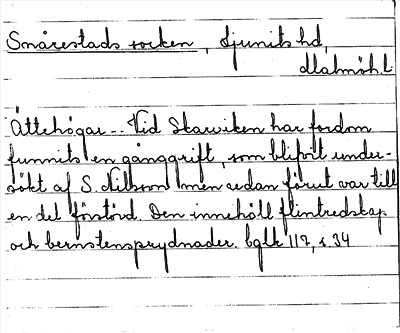 Snårestads socken, Ljunits hd,
Malmöh. L
Ättehögar.-- Vid Skarviken har fordom
funnits en gånggrift, som blifvit under-
sökt af S. Nilsson men redan förut var till
en del förstörd. Den innehöll flintredskap
och bernstensprydnader. bglk 117, s. 34